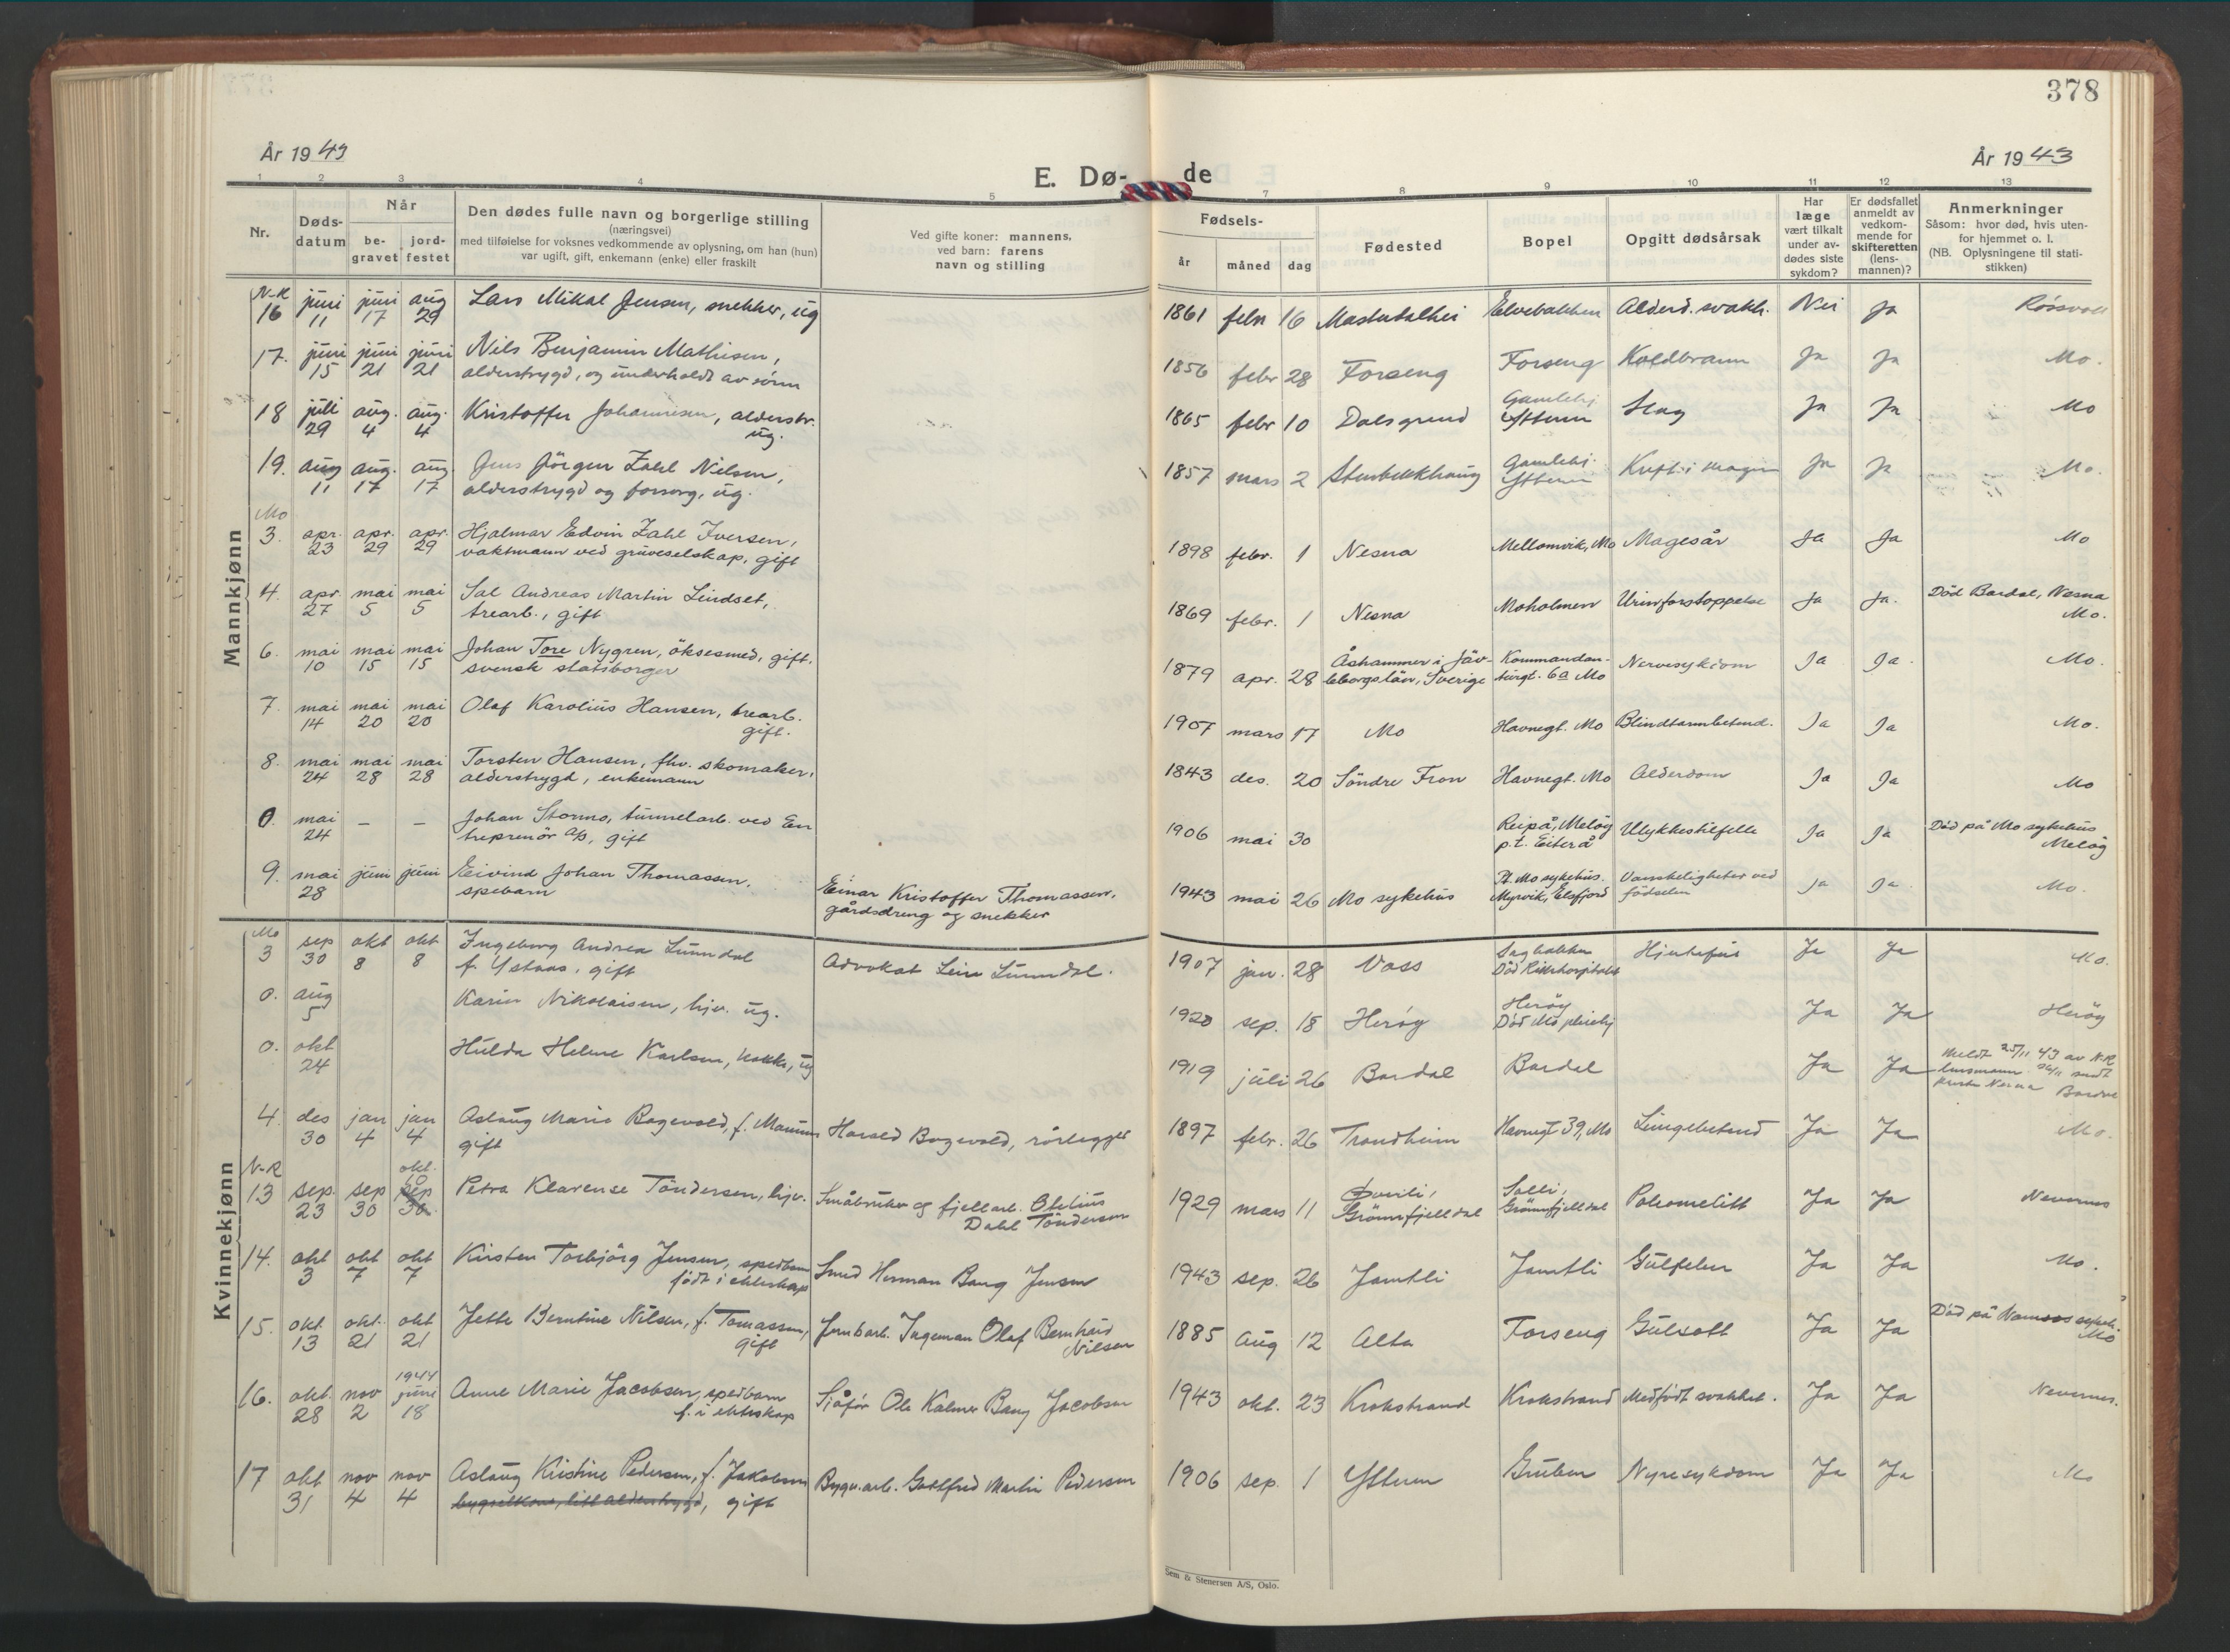 378
År 1943
E. Dø-
de
År 1943
1 2 3 4 5 7 8 9 10 11 12 13
Nr.
Døds-
datum
Når
be-
gravet
jord-
festet
Den dødes fulle navn og borgerlige stilling
(næringsvei)
med tilføielse for voksnes vedkommende av oplysning, om han (hun)
var ugift, gift, enkemann (enke) eller fraskilt
Ved gifte koner: mannens,
ved barn: farens
navn og stilling
Fødsels-
år
måned
dag
Fødested
Bopel
Opgitt dødsårsak
Har
læge
vært tilkalt
under av-
dødes siste
sykdom?
Er dødsfallet
anmeldt av
vedkom-
mende for
skifteretten
(lens-
mannen)?
Anmerkninger
Såsom: hvor død, hvis uten-
for hjemmet o. l.
(NB. Oplysningene til stati-
stikken)
Mannkjønn
N-R
16 juni 11 juni 17 aug 29 Lars Mikal Jensen, snekker, ug 1861 febr 16 Elvebakken Alderd. svakh. Nei Ja Røssvoll
17. juni 15 juni 21 juni 21 Nils Benjamin Mathisen,
alderstrygd, og underholdt av sønn 1856 febr 28 Forseng Forseng Koldbrann Ja Ja Mo.
18 juli 29 aug. 4 aug. 4 Kristoffer Johannesen, alderstr.
ug. 1865 febr 10 Dalsgrend Gamlehj
Ytteren Slag Ja Ja Mo
19. aug 11 aug. 17 aug. 17 Jens Jörgen Zahl Nilsen,
alderstrygd og forsorg, ug. 1857 mars 2 Stenbekkhaug Gamlehj.
Ytteren Kreft i magen Ja Ja Mo.
Mo
3. apr. 23 apr. 29 apr. 29 Hjalmar Edvin Zahl Iversen,
vaktmann ved gruveselskap, gift 1898 febr. 1 Nesna Mellomvik, Mo Magesår Ja Ja Mo
4. apr. 27 mai 5 mai 5 Sal Andreas Martin Lindset,
trearb., gift 1869 febr. 1 Nesna Moholmen Urinforstoppelse Ja Ja. Död Bardal, Nesna
Mo.
6. mai 10 mai 15 mai 15 Johan Tore Nygren, öksesmed, gift.
svensk statsborger 1879 apr. 28 Åshammer i Jäv-
leborgslän, Sverige Kommandan-
turgt. 6a Mo Nervesykdom Ja Ja. Mo.
7. mai 14 mai 20 mai 20 Olaf Karolius Hansen, trearb.
gift. 1907 mars 17 Mo Havnegt. Mo Blindtarmbetend. Ja Ja Mo.
8. mai 24 mai 28 mai 28 Torsten Hansen, fhv. skomaker,
alderstrygd, enkemann 1843 des. 20 Söndre Fron Havnegt. Mo Alderdom Ja Ja Mo
0. mai 24 – – Johan Stormo, tunnelarb. ved En
treprenör A/S, gift 1906 mai 30 Reipå, Melöy
p.t. Eiterå Ulykkestilfelle Ja Ja Död på Mo sykehus
Melöy
9. mai 28 juni juni Eivind Johan Thomassen,
spebarn Einar Kristoffer Thomassen,
gårdsdreng og snekker 1943 mai 26 Mo sykehus Pt. Mo sykehus.
Myrvik, Elsfjord Vanskeligheter ved
födselen Ja Ja. Mo.
Kvinnekjønn
Mo
3 sep 30 okt 8 okt 8 Ingeborg Andrea Lunndal
f. Ystaas, gift Advokat Leiv Lunndal. 1907 jan. 28 Voss
Död Rikshospitalet Hjertefeil Ja Ja Mo.
0. aug 5 Karin Nikolaisen, hjv. ug. 1920 sep. 18 Heröy Heröy
Död Mo pleiehj Ja Ja Heröy
0. okt 24 Hulda Helene Karlsen, kokke, ug 1919 juli 26 Bardal Bardal Ja Ja Meldt 25/11 43 av N-R
lensmann 26/11 sendt
Nesna Bardal
4. des 30 jan 4 jan 4 Aslaug Marie Bogevold, f.
gift Harald Bogevold, rörlegger 1897 febr. 26 Trondheim Havnegt 39, Mo Lungebetend Ja Ja Mo.
N-R
13 sep. 23 sep 30 okt. 10 sep 30. Petra Klarense Töndersen, hjv. Småbruker og fjellarb. Otelius
Dahl Töndersen 1929 mars 11
Grönnfjelldal
Grönnfjelldal Poliomelitt Ja Ja Nevernes
14. okt 3 okt 7 okt 7 Kirsten Torbjörg Jensen, spedbarn
födt i ekteskap Smed Herman Bang Jensen 1943 sep. 26 Jamtli Jamtli Gulfeber Ja Ja Mo.
15. okt. 13 okt. 21 okt 21 Jette Berntine Nilsen, f. Tomassen,
gift Jernbarb. Ingeman Olaf Bernhard
Nilsen 1885 aug 12 Alta Forseng Gulsott Ja Ja Död på Namsos sykeh.
Mo
16. okt. 28 nov 2 1944 juni 18 Anne Marie Jacobsen, spedbarn
f. i ekteskap Sjåför Ole Kalmer Bang Jacobsen 1943 okt. 23 Krokstrand Krokstrand Medfödt svakhet. Ja Ja Nevernes.
17 okt 31 nov 4 nov 4 Aslaug Kristine Pedersen, f. Jakobsen
gift Bygn.arb. Gottfred Martin Pedersen 1906 sep. 1 Ytteren Gruben Nyresykdom Ja Ja Mo
Sem & Stenersen A/S, Oslo.